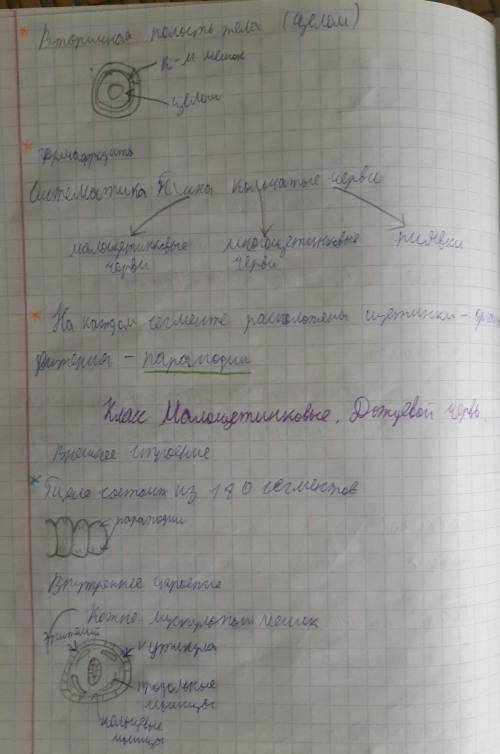 Вторичная полость тела (целом)
к-м мешок
целом
гермафродиты
Систематика Типа кольчатые черви
малощетинковые черви
многощетинковые черви
пиявки
На каждом сегменте расположены щетинки -
движения - параподии
Класс Малощетинковые. Дождевой червь
Внешнее строение
Тело состоит из 180 сегментов
параподии
Внутреннее строение
Кожно-мускульный мешок
эпителий
кутикула
продольные
мышцы
кольцевые
мышцы